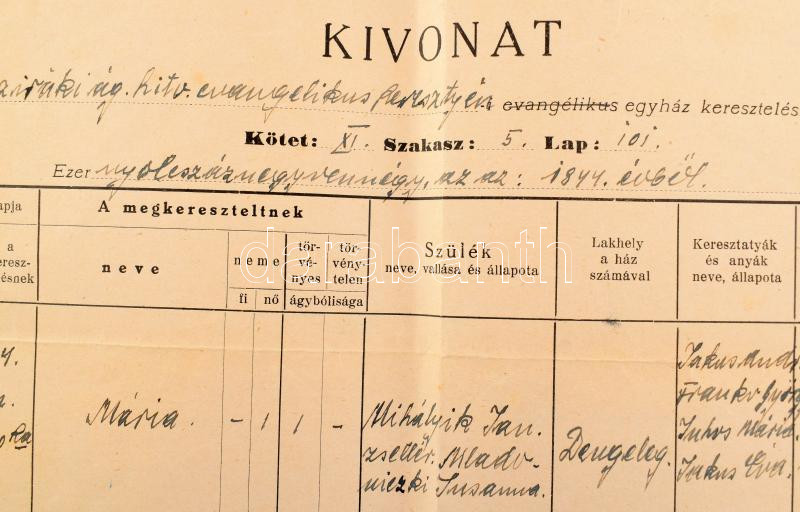 KIVONAT
ág. hitv. evangelikus keresztyén evangélikus egyház keresztelés
Kötet: XI. Szakasz: 5. Lap: 101.
Ezer nyolcszáznegyvennégy, az az: 1844. évből.
apja
a
keresz-
elésnek
A megkereszteltnek
neve
neme
fi nő
tör-
vé-
nyes
tör-
vény-
telen
ágybólisága
Szülék
neve, vallása és állapota
Lakhely
a ház
számával
Keresztatyák
és anyák
neve, állapota
Mária. - 1 1 -
Mihályik Jan.
zsellér. Mlado-
niczki Susanna.
Dengeleg.
Jakus And
Franko Györg
Juhos Mária.
Jakus Éva.
darabanth